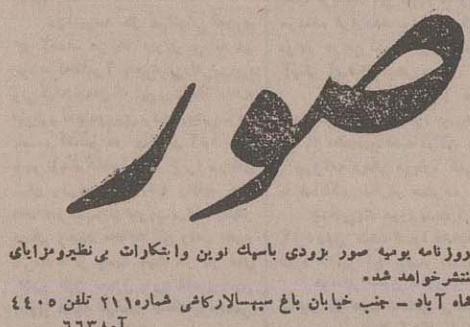 صور
روزنامه یومیه صور بزودی باسبك نوین وابتکارات بی‌نظیرومزایای
منتشرخواهد شد.
شاه آباد ـ جنب خیابان باغ سپهسالارکاشی شماره ۲۱۱ تلفن ۴۴۰۵
آ ـ ۶۶۳۸